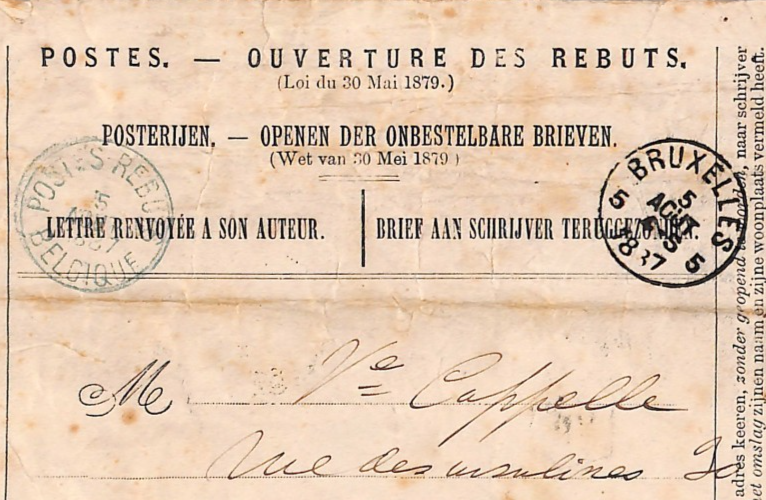 POSTES. — OUVERTURE DES REBUTS.
(Loi du 30 Mai 1879.)
POSTERIJEN. — OPENEN DER ONBESTELBARE BRIEVEN.
(Wet van 30 Mei 1879)
POSTES-REBUTS
5
1887
BELGIQUE
BRUXELLES
5
AOUT
5
1887
5 5
LETTRE RENVOYÉE A SON AUTEUR.
BRIEF AAN SCHRIJVER TERUGGEZONDEN.
M Ve Cappelle
rue des ursulines 30
adres keeren, zonder geopend te worden, naar schrijver
et omslag zijnen naam en zijne woonplaats vermeld heeft.